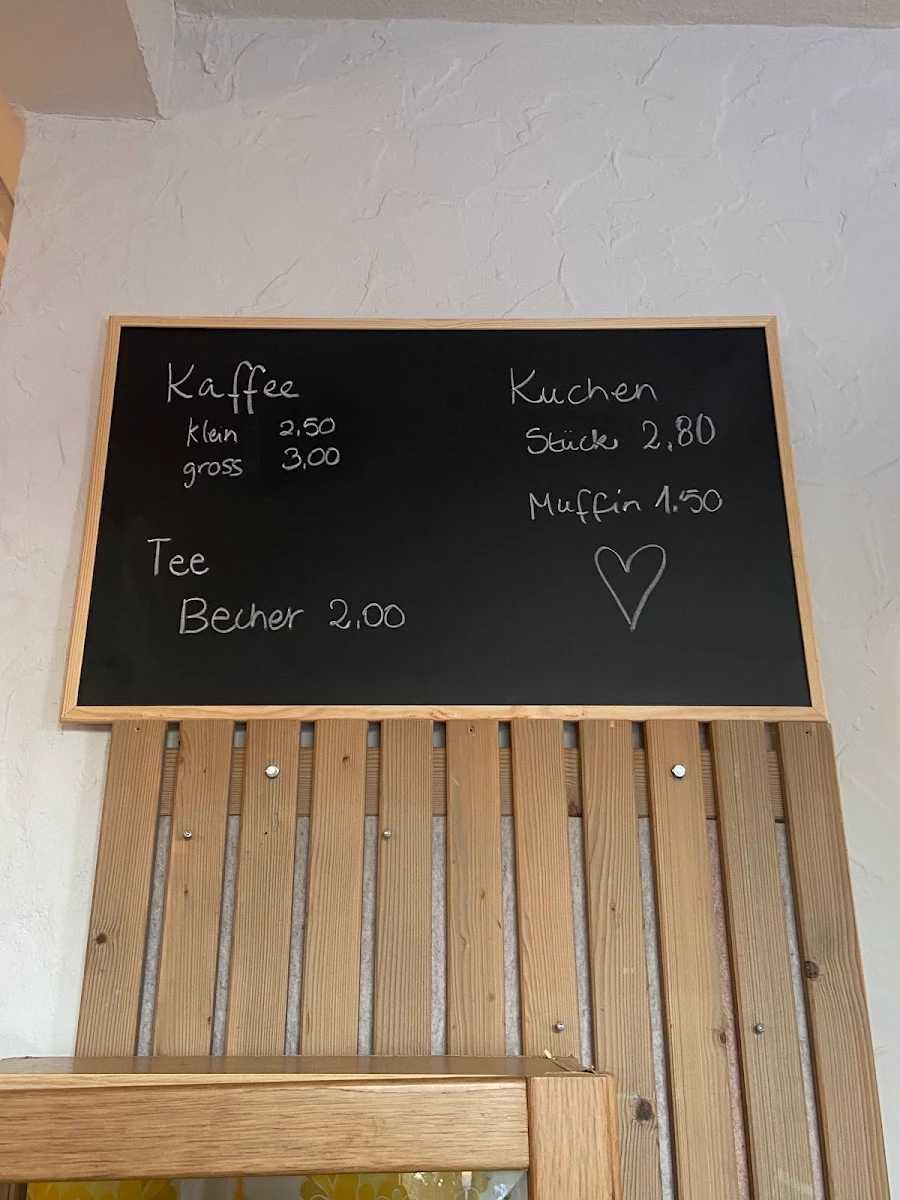 Kaffee
klein 2,50
gross 3,00
Tee
Becher 2,00
Kuchen
Stück 2,80
Muffin 1.50